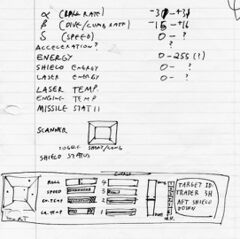 α (ROLL RATE) -31 - +31
β (DIVE/CLIMB RATE) -15 - +16
δ (SPEED) 0 - ?
ACCELERATION?
ENERGY 0 - 255 (?)
SHIELD ENERGY 0 - ?
LASER ENERGY 0 - ?
LASER TEMP
ENGINE TEMP
MISSILE STAT
SCANNER
TOGGLE SHORT/LONG
SHIELD STATUS
ROLL 4
SPEED 3
2
1
TARGET ID:
TRADER SH
AFT SHIELD
DOWN